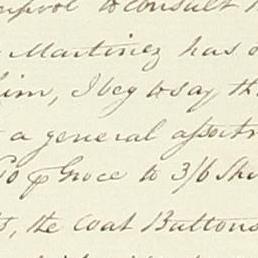 to consult
Martinez has
him, I beg to say th
a general assortm
⅌ Groce to 3/6 Shi
the Coat Buttons